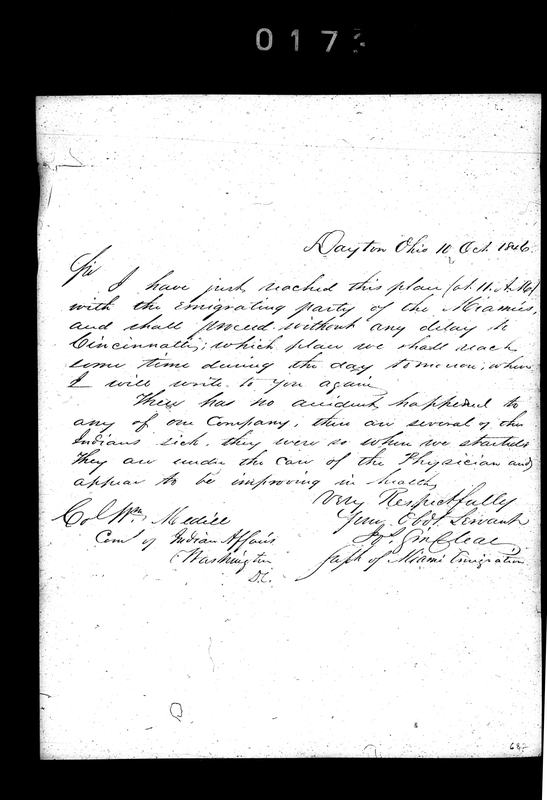 0173
Dayton Ohio 10 Oct. 1846.
Sir
I have just reached this place (at 11. A. M.)
with the emigrating party of the Miamies,
and shall proceed without any delay to
Cincinnatti; which place we shall reach
some time during the day tomorrow; when
I will write to you again
There has no accident happened to
any of our Company, there are several of the
Indians sick. they were so when we started
They are under the care of the Physician and
appear to be improving in health
Very Respectfully
Your Obdt. Servant
Jos. Sinclear
Supt of Miami Emigration
Col Wm. Medill
Comr of Indian Affairs
Washington
D.C.
68